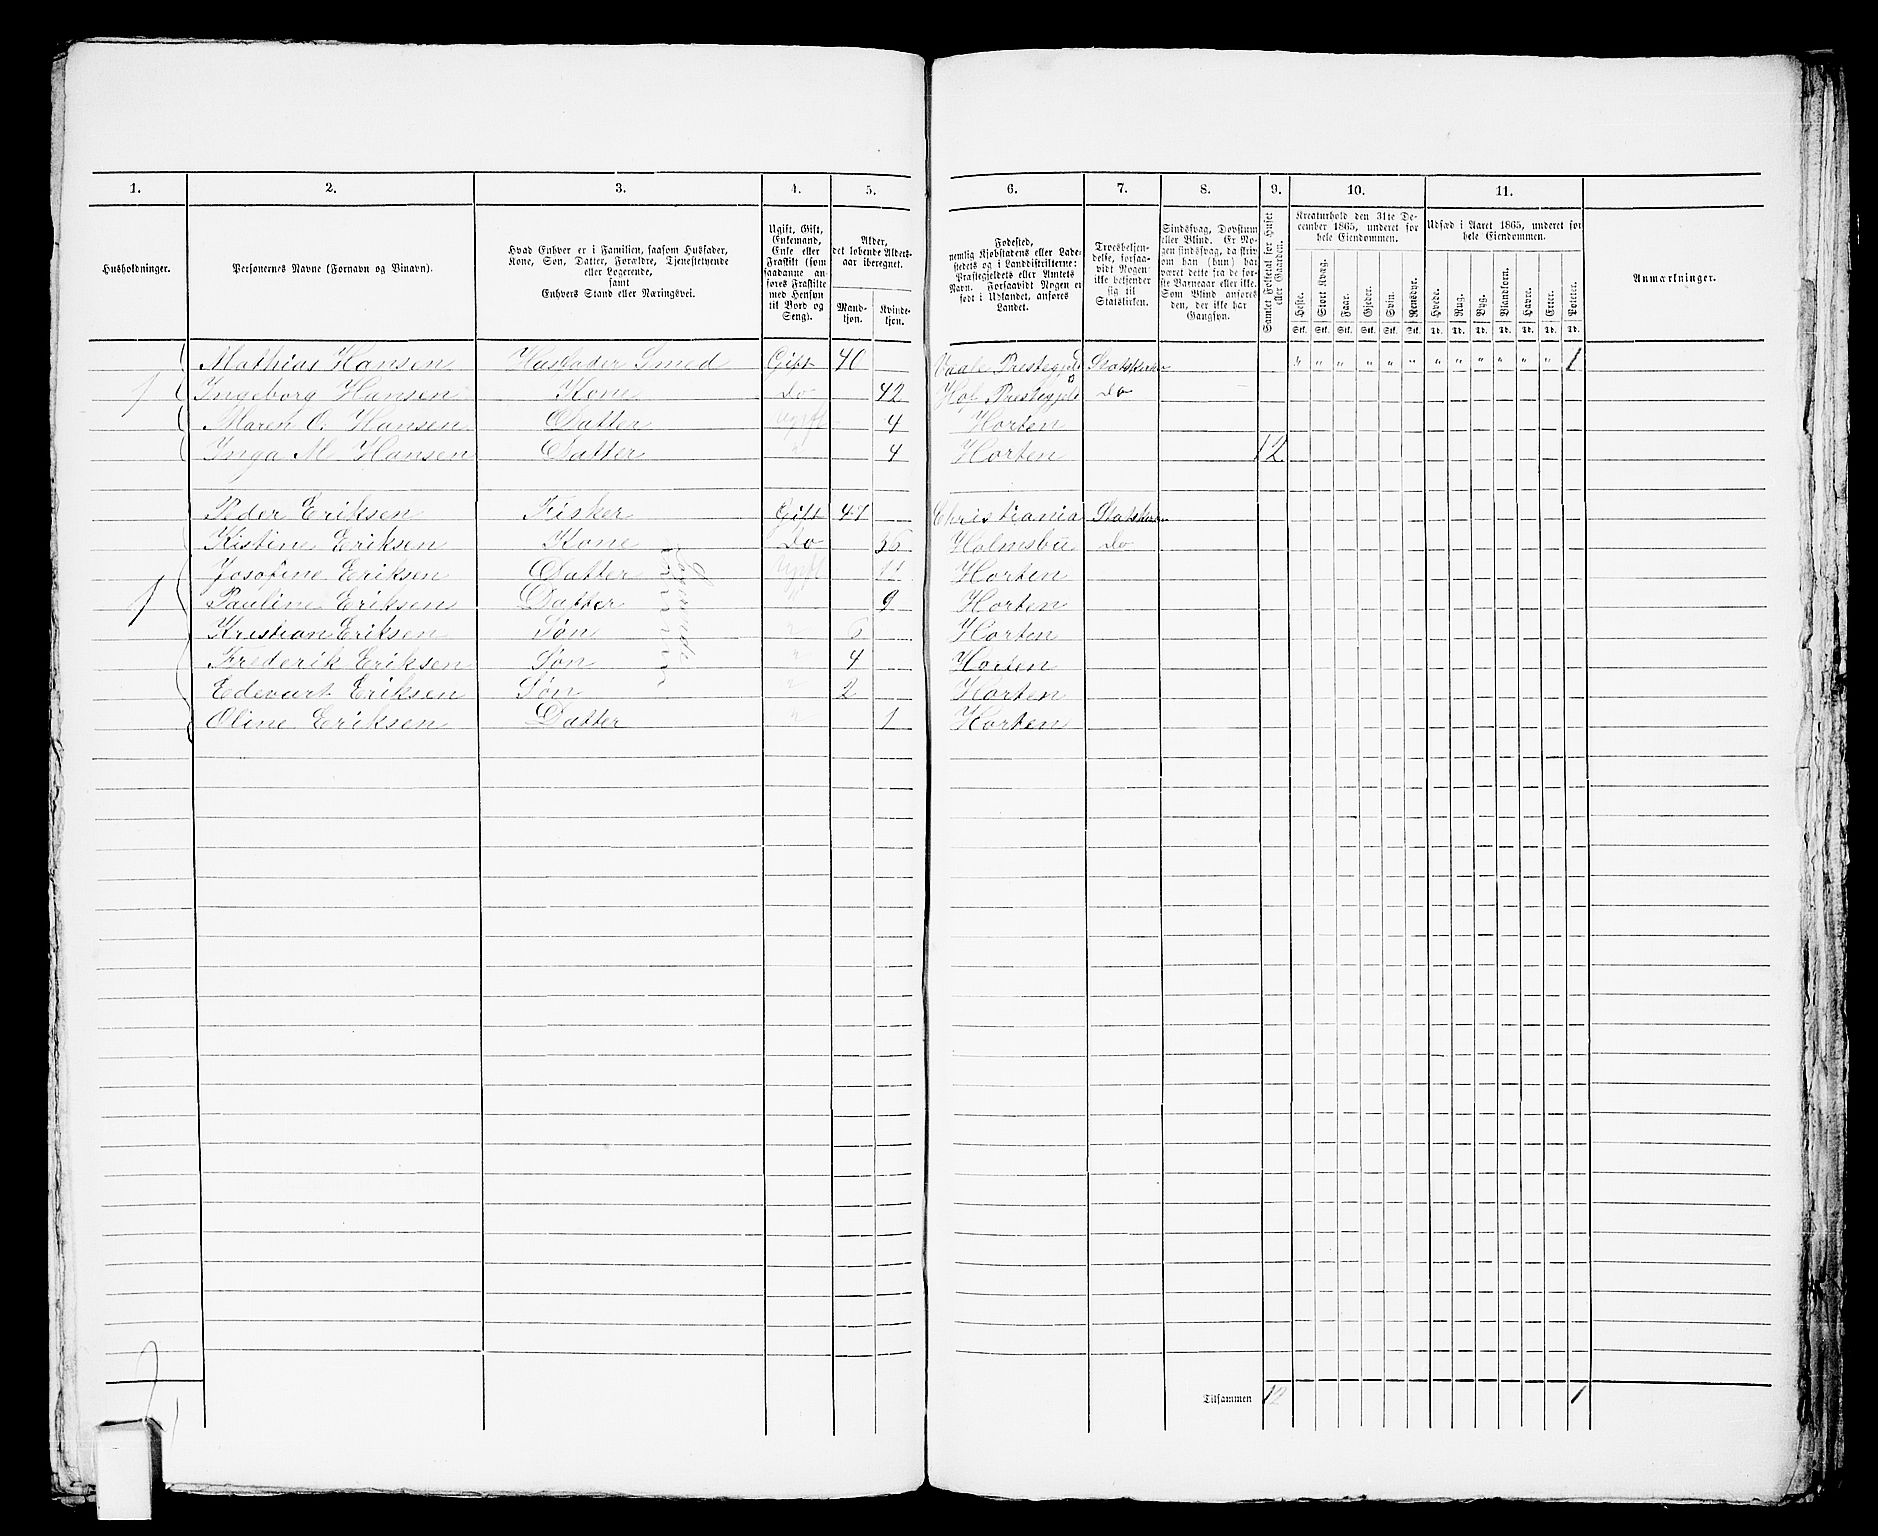 1. 2. 3. 4. 5. 6. 7. 8. 9. 10. 11.
Husholdninger.
Personernes Navne (Fornavn og Tilnavn).
Hvad Enhver er i Familien, saasom Husfader,
Kone, Søn, Datter, Forældre, Tjenestetyende
eller Logerende,
samt
Enhvers Stand eller Næringsvei.
Ugift, Gift,
Enkemand,
Enke eller
Fraskilt (som
saadanne an-
føres Fraskilte
med Hensyn
til Bord og
Seng).
Alder,
det løbende Alders-
aar iberegnet.
Mand-
kjøn.
Kvinde-
kjøn.
Fødested,
nemlig Kjøbstadens eller Lade-
stedets og i Landdistrikterne:
Præstegjeldets eller Amtets
Navn. Forsaavidt Nogen er
født i Udlandet, anføres
Landet.
Troesbekjen-
delse, forsaa-
vidt Nogen
ikke bekjender
sig til
Statskirken.
Sindssvag, Døvstum
eller Blind. Er No-
gen sindssvag, da skriv
om han (hun) har
været dette fra de før-
ste Barneaar eller ikke.
Som Blind anføres
den, der ikke har
Gangsyn.
Samlet Folketal for Huset
eller Gaarden.
Kreaturhold den 31te De-
cember 1865, underet for
hele Eiendommen.
Heste. Stort Kvæg. Faar. Gjeder. Svin. Rensdyr.
Stk. Stk. Stk. Stk. Stk. Stk.
Udsæd i Aaret 1865, underet for
hele Eiendommen.
Hvede. Rug. Byg. Blandkorn. Havre. Erter. Poteter.
Td. Td. Td. Td. Td. Td. Td.
Anmærkninger.
Mathias Hansen Husfader Smed Gift 40 Vaale Prestegjeld Statskirken " " " " " " " " " " " " 1
1 Ingeborg Hansen Kone Do 42 Hof Prestegjeld Do
Maren O. Hansen Datter Ugift 4 Horten
Inga M Hansen Datter " 4 Horten 12
Peder Eriksen Fisker Gift 47 Christiania Statskirken
Kistine Eriksen Kone Do Holmsbu Do
Josefine Eriksen Datter Ugift Horten
1 Pauline Eriksen Datter " 9 Horten
Kristian Eriksen Søn " 6 Horten
Frederik Eriksen Søn " 4 Horten
Edevart Eriksen Søn " 2 Horten
Oline Eriksen Datter " 1 Horten
Logerende
Tilsammen 12 1